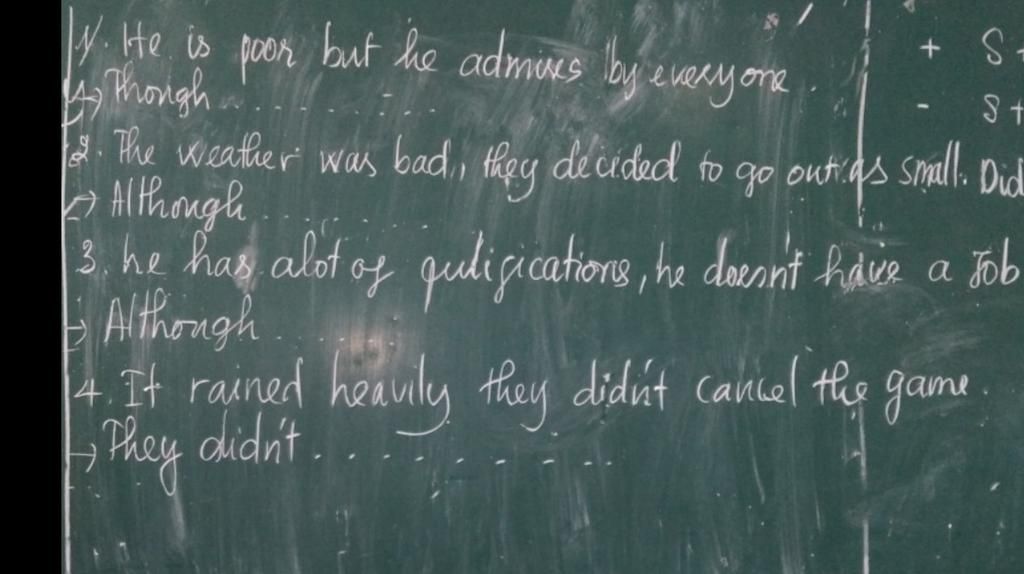 1. He is poor but he admires by everyone.
→ Though ............
2. The weather was bad, they decided to go out as small. Did
→ Although ............
3. he has alot of qulifications, he doesn't have a Job
→ Although ............
4. It rained heavily they didn't cancel the game.
→ They didn't ............
+ S+
- S+